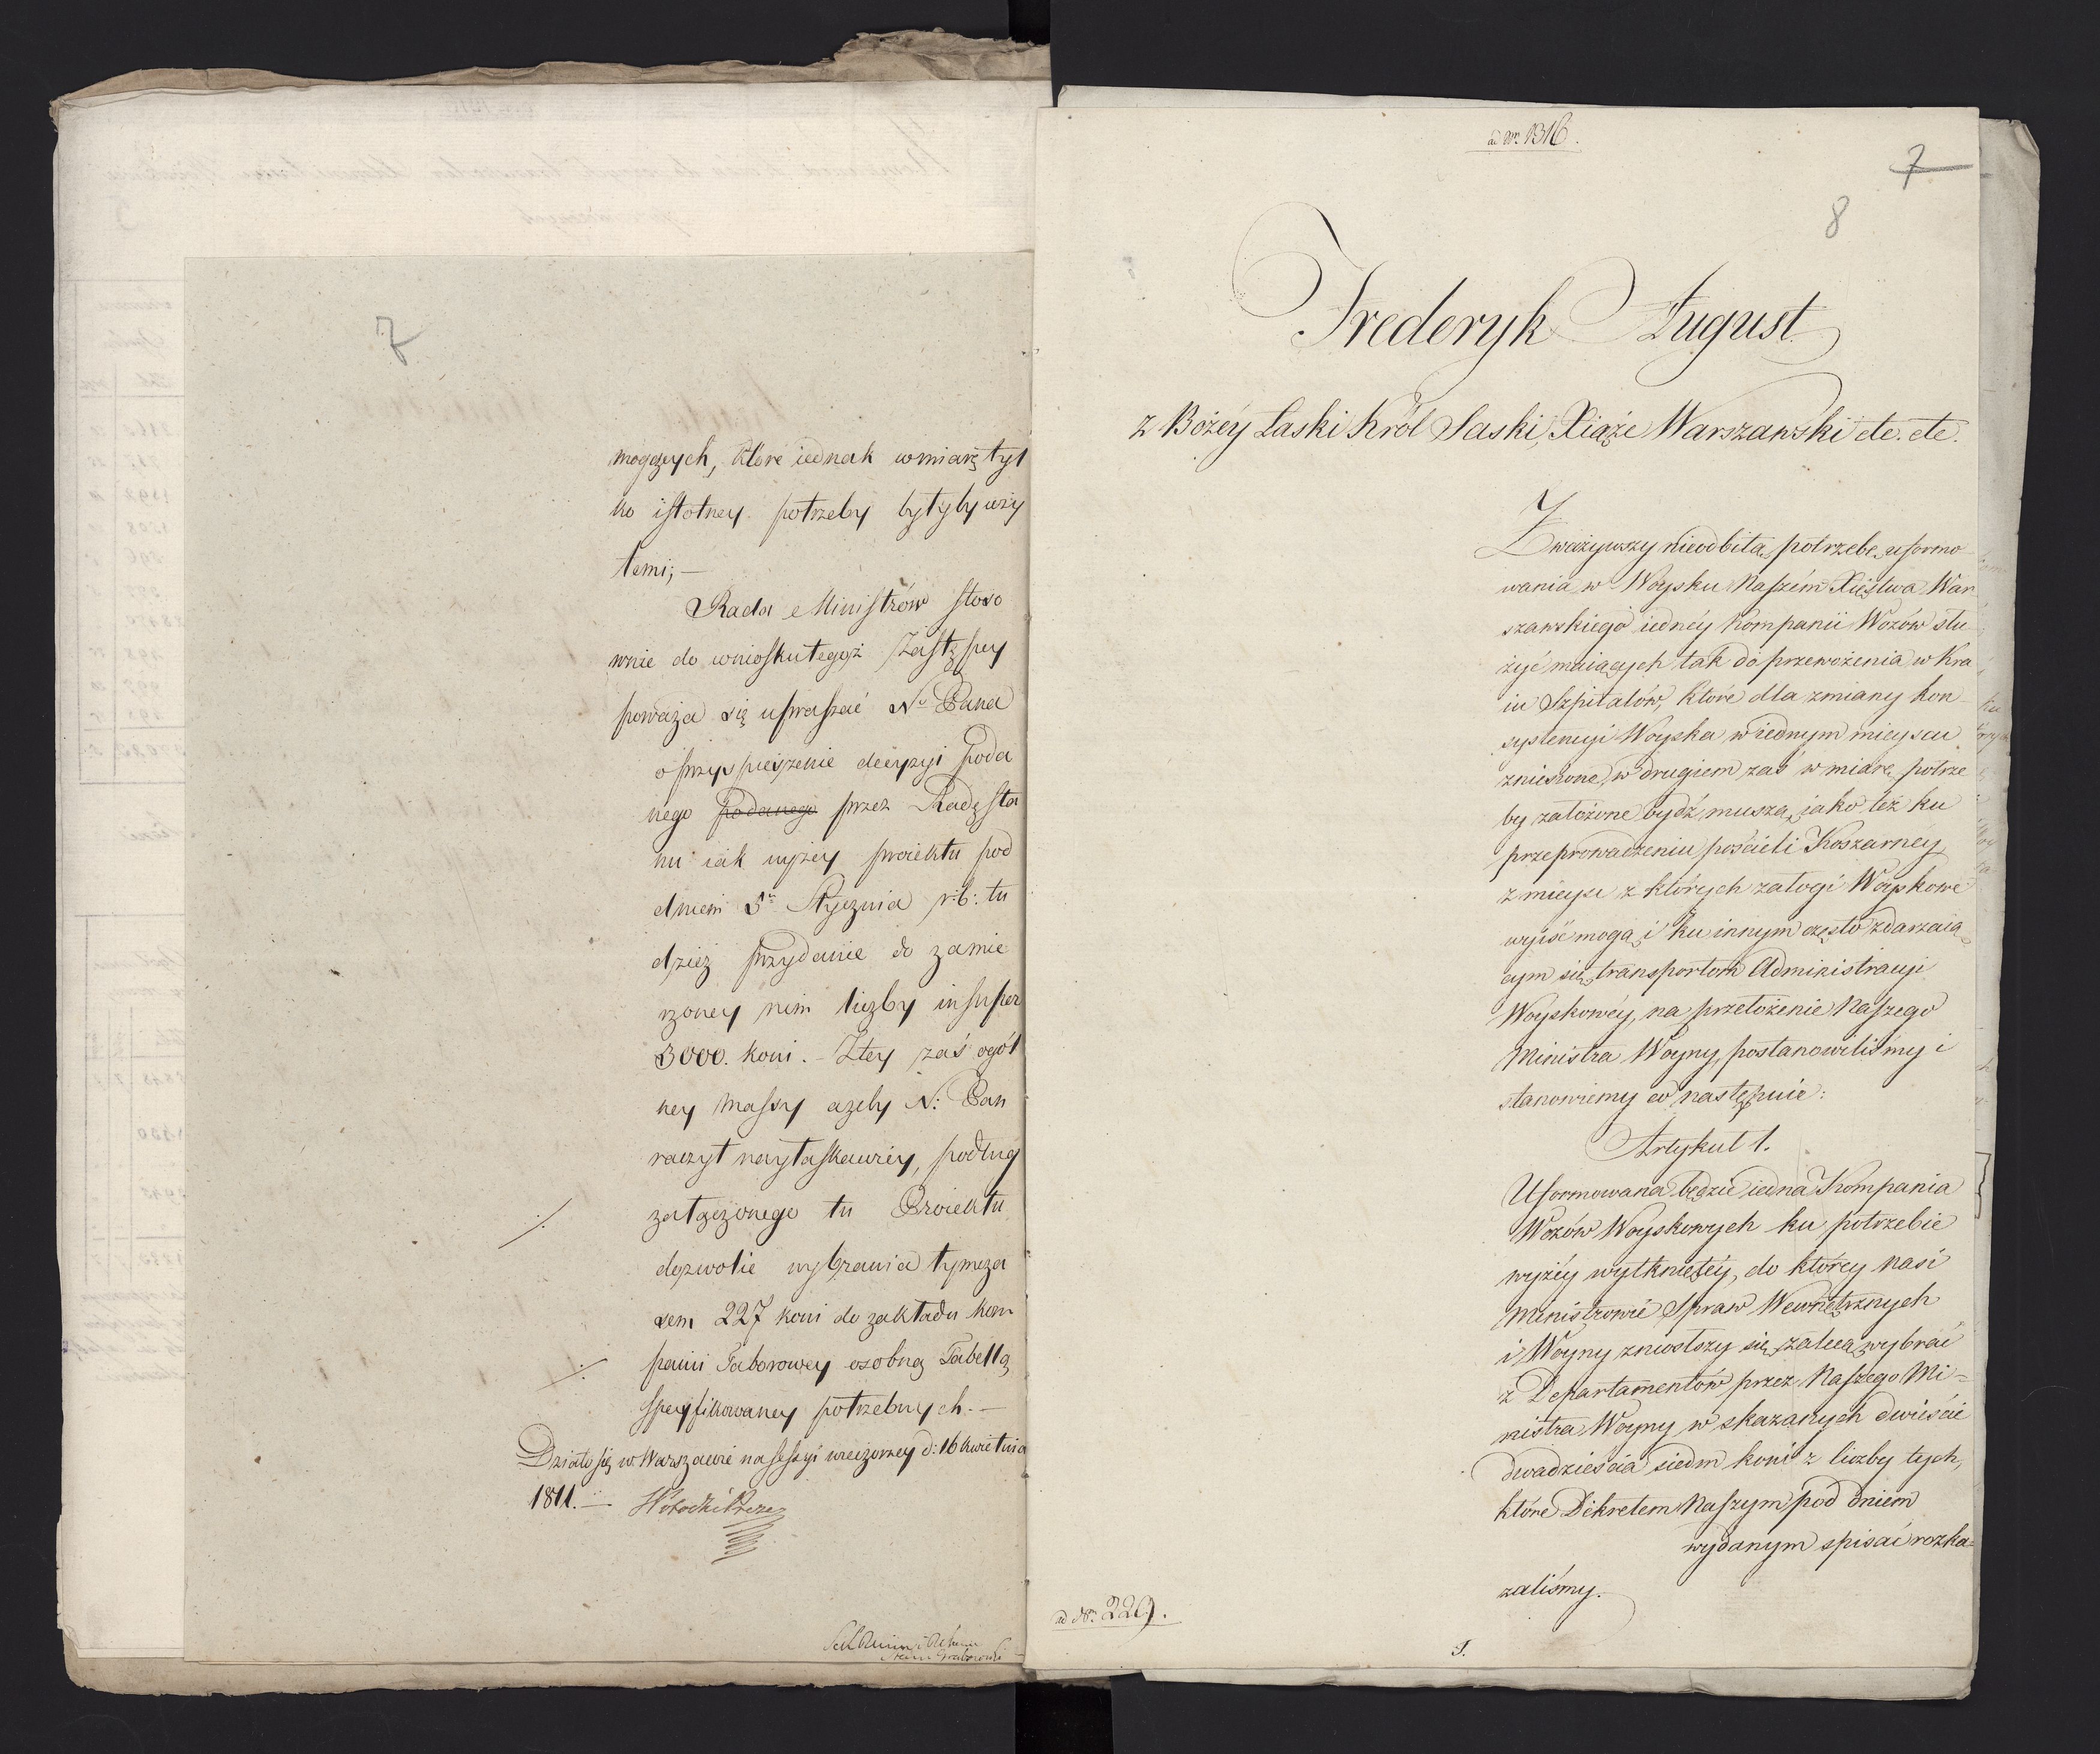 7
mogących, które iednak w miarę tyl
ko istotney potrzeby byłyby uży
temi; —
Rada Ministrów stoso
wnie do wniosku tegoż Zastępcy
poważa się upraszać N. Pana
o przyspieszenie decyzyi poda
nego podanego przez Radę Sta
nu iak wyżey proiektu pod
dniem 5. Stycznia r: b: tu
dzież przydanie do zamie
rzoney nim liczby insuper
3000. koni. — Z tey zaś ogól
ney massy ażeby N: Pan
raczył nayłaskawiey, podług
załączonego tu Proiektu
dozwolić wybrania tymcza
sem 227 koni do zakładu kom
panii Taborowey osobną Tabellą
specyfikowaney potrzebnych. —
Działo się w Warszawie na sessyi wieczorney d: 16 Kwietnia
1811. —
ad Nr. 1316.
7
8
Frederyk August
z Bożéy Łaski Król Saski, Xiąże Warszawski etc. etc.
Zważywszy nieodbitą potrzebę uformo
wania w Woysku Naszém Xięstwa War
szawskiego iednéy Kompanii Wozów słu
żyć maiących tak do przewożenia w Kra
iu Szpitalów, które dla zmiany kon
systencyi Woyska w iednym mieyscu
zniesione, w drugiem zaś w miarę potrze
by założone bydź muszą, iako też ku
przeprowadzeniu pościeli Koszarney
z mieysc z których załogi Woyskowe
wyiść mogą, i ku innym często zdarzaią
cym się transportom Administracyi
Woyskowéy, na przełożenie Naszego
Ministra Woyny, postanowiliśmy i
stanowiemy co następuie:
Artykuł 1.
Uformowana będzie iedna Kompania
Wozów Woyskowych ku potrzebie
wyżéy wytkniętéy, do którey nasi
Ministrowie Spraw Wewnętrznych
i Woyny zniosłszy się, zalecą wybrać
z Departamentów przez Naszego Mi=
nistra Woyny wskazanych dwieście
dwadzieścia siedm koni z liczby tych,
które Dekretem Naszym pod dniem
wydanym spisać rozka=
zaliśmy.
ad Nr. 229.